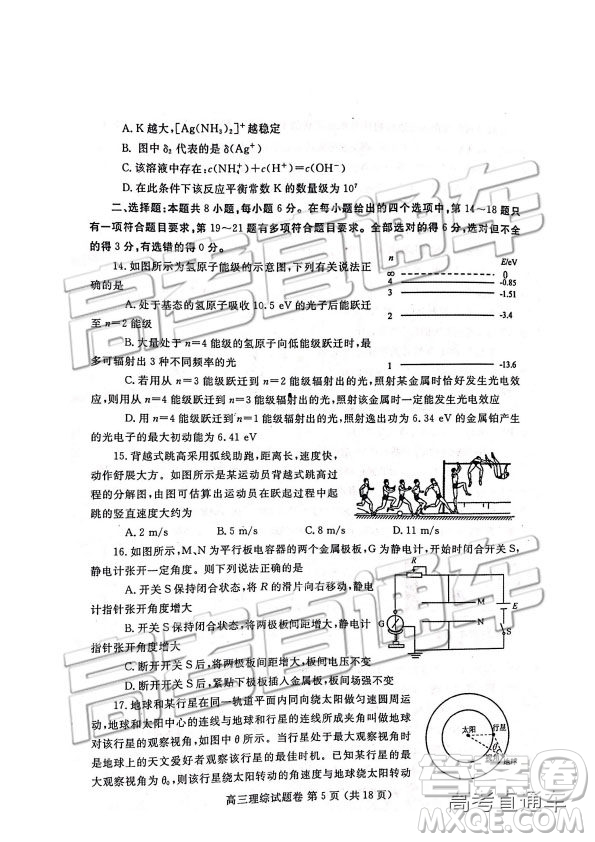 A. K 越大,[Ag(NH₃)₂]⁺越稳定
B. 图中 δ₂ 代表的是 δ(Ag⁺)
C. 该溶液中存在:c(NH₄⁺)+c(H⁺)=c(OH⁻)
D. 在此条件下该反应平衡常数 K 的数量级为 10⁷
二、选择题:本题共 8 小题,每小题 6 分。在每小题给出的四个选项中,第 14~18 题只
有一项符合题目要求,第 19~21 题有多项符合题目要求。全部选对的得 6 分,选对但不全
的得 3 分,有选错的得 0 分。
14. 如图所示为氢原子能级的示意图,下列有关说法正
确的是
A. 处于基态的氢原子吸收 10.5 eV 的光子后能跃迁
至 n=2 能级
B. 大量处于 n=4 能级的氢原子向低能级跃迁时,最
多可辐射出 3 种不同频率的光
n E/eV
∞ 0
4 -0.85
3 -1.51
2 -3.4
1 -13.6
C. 若用从 n=3 能级跃迁到 n=2 能级辐射出的光,照射某金属时恰好发生光电效
应,则用从 n=4 能级跃迁到 n=3 能级辐射出的光,照射该金属时一定能发生光电效应
D. 用 n=4 能级跃迁到 n=1 能级辐射出的光,照射逸出功为 6.34 eV 的金属铂产生
的光电子的最大初动能为 6.41 eV
15. 背越式跳高采用弧线助跑,距离长,速度快,
动作舒展大方。如图所示是某运动员背越式跳高过
程的分解图,由图可估算出运动员在跃起过程中起
跳的竖直速度大约为
A. 2 m/s B. 5 m/s C. 8 m/s D. 11 m/s
16. 如图所示,M、N 为平行板电容器的两个金属极板,G 为静电计,开始时闭合开关 S,
静电计张开一定角度。则下列说法正确的是
A. 开关 S 保持闭合状态,将 R 的滑片向右移动,静电
计指针张开角度增大
B. 开关 S 保持闭合状态,将两极板间距增大,静电计
指针张开角度增大
C. 断开开关 S 后,将两极板间距增大,板间电压不变
D. 断开开关 S 后,紧贴下极板插入金属板,静电计指针张开角度增大
R
G
M
N
E
S
17. 地球和某行星在同一轨道平面内同向绕太阳做匀速圆周运
动,地球和太阳中心的连线与地球和行星的连线所成夹角叫做地球
对该行星的观察视角,如图中 θ 所示。当行星处于最大观察视角时是
地球上的天文爱好者观察该行星的最佳时机。已知某行星的最
大观察视角为 θ₀,则该行星绕太阳转动的角速度与地球绕太阳转动
太阳
行星
θ
地球
高三理综试题卷 第 5 页(共 18 页)
高考直通车
高考直通车
高考直通车